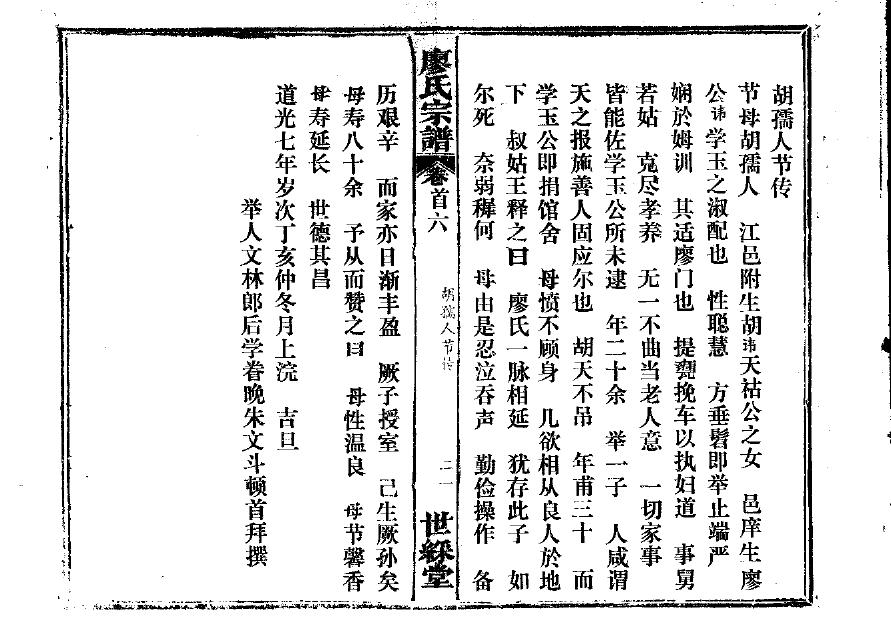 胡孺人节传
节母胡孺人 江邑附生胡讳天祜公之女 邑庠生廖
公讳学玉之淑配也 性聪慧 方垂髫即举止端严
娴於姆训 其适廖门也 提甕挽车以执妇道 事舅
若姑 克尽孝养 无一不曲当老人意 一切家事
皆能佐学玉公所未逮 年二十余 举一子 人咸谓
天之报施善人固应尔也 胡天不吊 年甫三十 而
学玉公即捐馆舍 母愤不顾身 几欲相从良人於地
下 叔姑王释之曰 廖氏一脉相延 犹存此子 如
尔死 奈弱穉何 母由是忍泣吞声 勤俭操作 备
廖氏宗譜
卷首六
胡孺人节传
二一
世綵堂
历艰辛 而家亦日渐丰盈 厥子授室 己生厥孙矣
母寿八十余 予从而赞之曰 母性温良 母节馨香
母寿延长 世德其昌
道光七年岁次丁亥仲冬月上浣 吉旦
举人文林郎后学眷晚朱文斗顿首拜撰